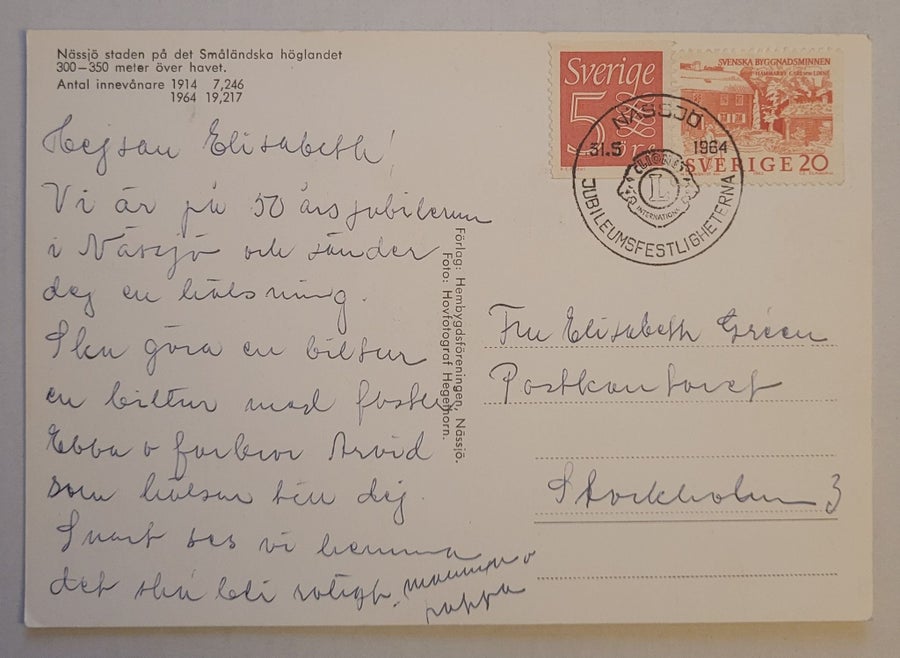 Nässjö staden på det Småländska höglandet
300–350 meter över havet.
Antal innevånare 1914 7,246
1964 19,217
Hejsan Elisabeth!
Vi är på 50 årsjubileum
i Nässjö och sänder
dig en hälsning.
Ska göra en biltur
en biltur med faster
Ebba o farbror Arvid
som hälsar till dig.
Snart ses vi hemma
det ska bli roligt. mamma o
pappa
Förlag: Hembygdsföreningen, Nässjö.
Foto: Hovfotograf Hegethorn.
Sverige
5 öre
SVENSKA BYGGNADSMINNEN
HAMMARBY. CARL VON LINNÉ
SVERIGE 20
NÄSSJÖ
31.5 1964
LIONS
L
INTERNATIONAL
JUBILEUMSFESTLIGHETERNA
Fru Elisabeth Green
Postkontoret
Stockholm 3